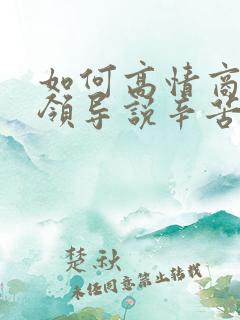 如何高情商
领导说辛苦
楚秋
未经同意禁止转载